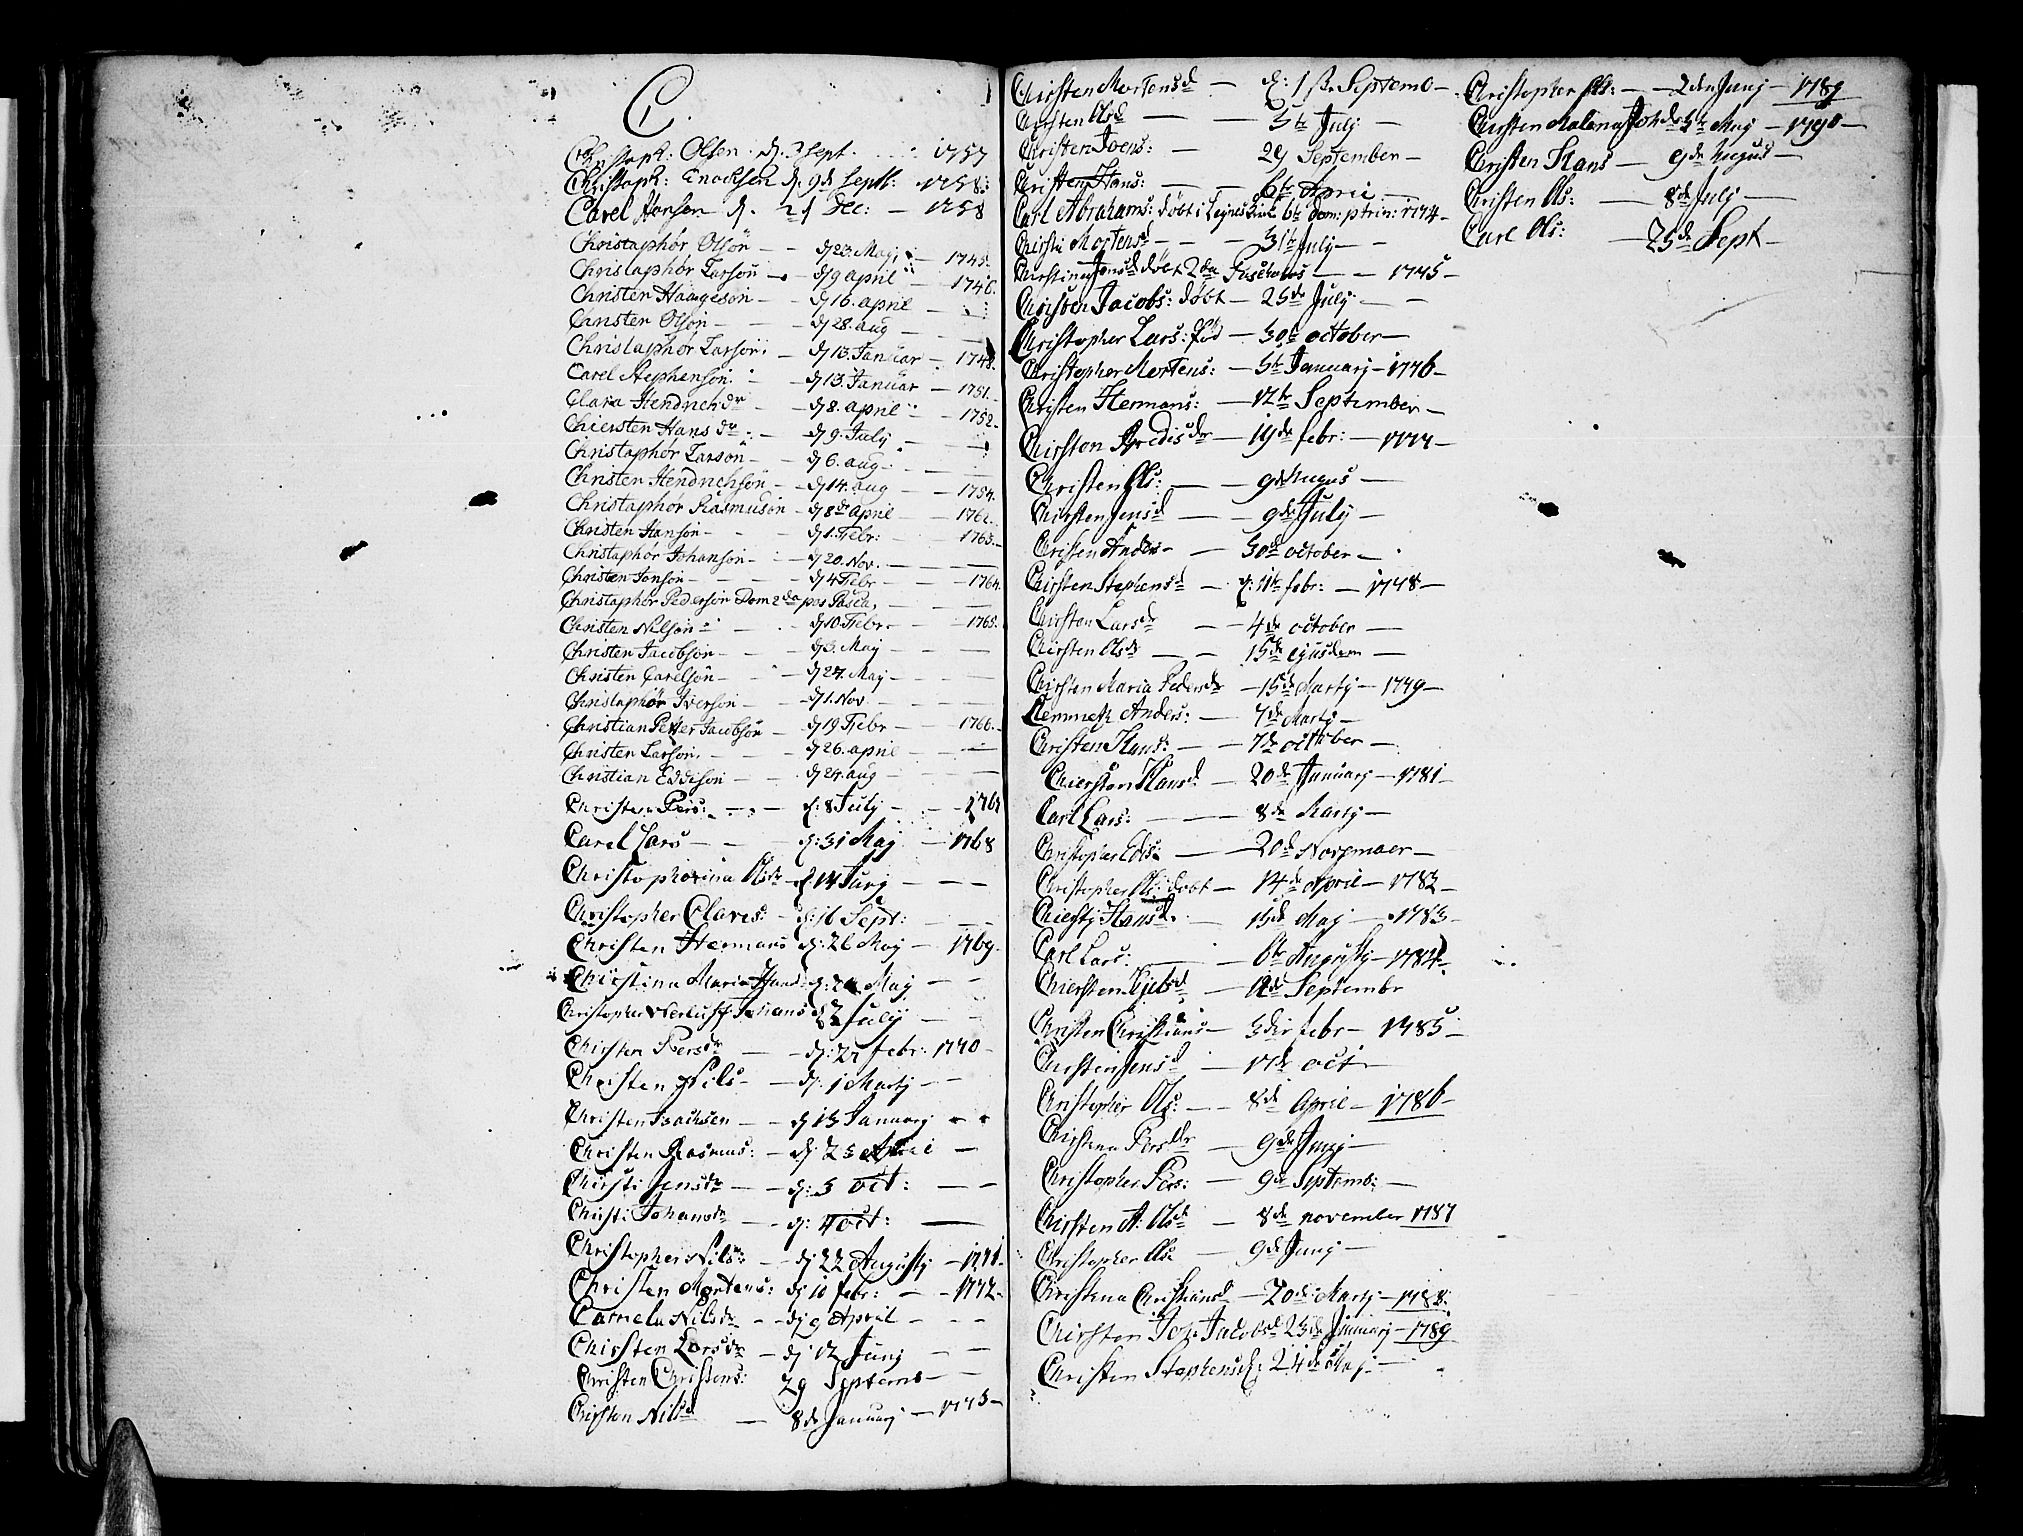 C.
Christoph: Olsen. d. 3 sept. 1757
Christoph: Enochsen d. 9de Septb: 1758.
Carel Hansen d. 21 Dec: — 1758
Christaphør Olsøn — — d 23. Maji — 1745.
Christaphør Larsøn — d 9 april — 1746.
Christen Haagesøn — d 16. april —
Christen Olsøn — — d 28. aug —
Christaphør Larsøn. — d 13. Januar — 1748.
Carel Stephensøn. — d 13. Januar — 1751.
Clara Hendrichdr — d 8. april — 1752.
Chiersten Hansdr — d 9. July —
Christaphør Larsøn — d 6. aug —
Christen Hendrichsøn — d 14. aug — 1754.
Christaphør Rasmusøn — d 8de april — 1762.
Christen Hansøn — d 1. Febr: — 1763.
Christaphør Johansøn — d 20. Nov. —
Christen Jonsøn — — d 4 Febr — 1764.
Christaphør Pedersøn Dom 2da pos Pasca, —
Christen Nilsøn — d 10. Febr — 1765.
Christen Jacobsøn — d 3. Maj —
Christen Carelsøn — d 27. Maj —
Christaphør Iversøn — d 1. Nov. —
Christian Petter Jacobsøn — d 19 Febr — 1766.
Christen Larsøn. — d 26. april —
Christian Eddisøn — d 24. aug —
Christen Pers: — d: 8 July — 1767
Carel Lars — — d: 31 Maj — 1768
Christophorina Olsdr — d 14 Junj — — —
Christopher Clares: — d: 16 Sept: — —
Christen Hermans d: 26 Maj — 1769.
Chirstina Maria Hansd: d: 26 Maj — —
Christopher Johans d 2 July —
Chirsten Persdr — d: 27 febr: 1770 —
Christen Nils — d: 1 Martj — —
Christen Isachsen — — d 13 Januarj
Christen Rasmus: — d 23 Aprili —
Chirsti Jensdr — — d: 3 oct: — —
Chirsti Johansdr — d: 4 oct: —
Christopher Nils: — d 22 Augustj — 1771.
Christen Mortens: d 10 febr: — 1772.
Carnela Nilsdr — — d 9 April — — —
Chirsten Larsdr — d 12 Junj — —
Christen Christens: 29 Septemb — —
Chirsten Nilsd — 8de Januarj — 1773 —
Chirsten Mortensd — d: 1ste Septemb —
Chirsten Olsd — — 3te Julj —
Christen Joens: — 29 September —
Christen Hans: — — 6te Aprili —
Carl Abrahams: døbt i Lejnes Kirk 6te Dom: p trin: 1774 —
Chirsti Mortensd — — 31te July — —
Chirstina Jensd døbt 2da Paschatos — — 1775 —
Christen Jacobs: døbt — 25de July — —
Christopher Lars: fød — 30te october —
Christopher Mortens: — 5te Januarj — 1776 —
Christen Hermans: — 12te September —
Chirsten Agredisdr — 19de febr: — 1777 —
Christen Ols: — — 9de Augus —
Chirsten Jensd — — 9de July —
Christen Anders — — 30de october —
Chirsten Stephensd — d: 11te febr: — 1778 —
Chirsten Larsdr — — 4de october —
Chirsten Olsdr — — 15de ejusdem —
Chirsten Maria Pedersdr — 15de Martj — 1779 —
Clemmetz Anders: — 7de Martj —
Christen Hans: — — 7de october —
Chiersten Hansd — 20de Januarj — 1781 —
Carl Lars: — — — 8de Martj —
Christopher Edis: — 20de November —
Christopher Ols: døbt — 14de April — 1782 —
Chiersti Hansd. — 15de Maj — 1783 —
Carl Lars: — 6te Augustj — 1784
Chiersten — 12de Septembr
Christen Christians — 3die febr — 1785 —
Chirsten Jensd — 17de oct —
Christopher Ols: — — 8de April — 1786 —
Chirstena Persdr — 9de Junj —
Christopher Pers: — 9de Septemb: —
Chirsten A: Olsdr — 8de november 1787
Christopher Ols: — 9de Junj —
Christena Christiansd — 20de Martj — 1788.
Chirsten Joh: Jacobsd 23de Januarj — 1789
Christen Stephensd: 24de Maj —
Christopher Ols: — — 2den Junj — 1789
Chirsten Malena Johdr 5te Maj — 1790 —
Christen Hans — 9de Augus —
Christen Ols: — 8de July —
Carl Ols: — 25de Sept —